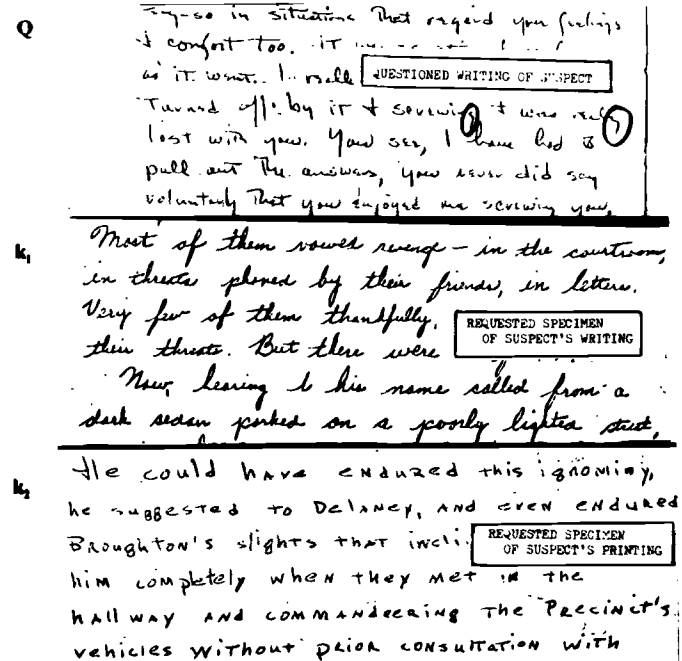 Q
say-so in situations that regard your feelings
& comfort too. IT
as it went. I. really QUESTIONED WRITING OF SUSPECT
Turned off. by it & screwing & was really
lost with you. You see, I have had to
pull out the answers, you never did say
voluntarily That you enjoyed me screwing you.
k₁
Most of them vowed revenge – in the courtroom,
in threats phoned by their friends, in letters.
Very few of them thankfully,
REQUESTED SPECIMEN
OF SUSPECT'S WRITING
their threats. But there were
Now, hearing his name called from a
dark sedan parked on a poorly lighted street,
k₂
He could have endured this ignominy,
he suggested to Delaney, and even endured
Broughton's slights that incli
REQUESTED SPECIMEN
OF SUSPECT'S PRINTING
him completely when they met in the
hallway and commandeering the Precinct's
vehicles without prior consultation with